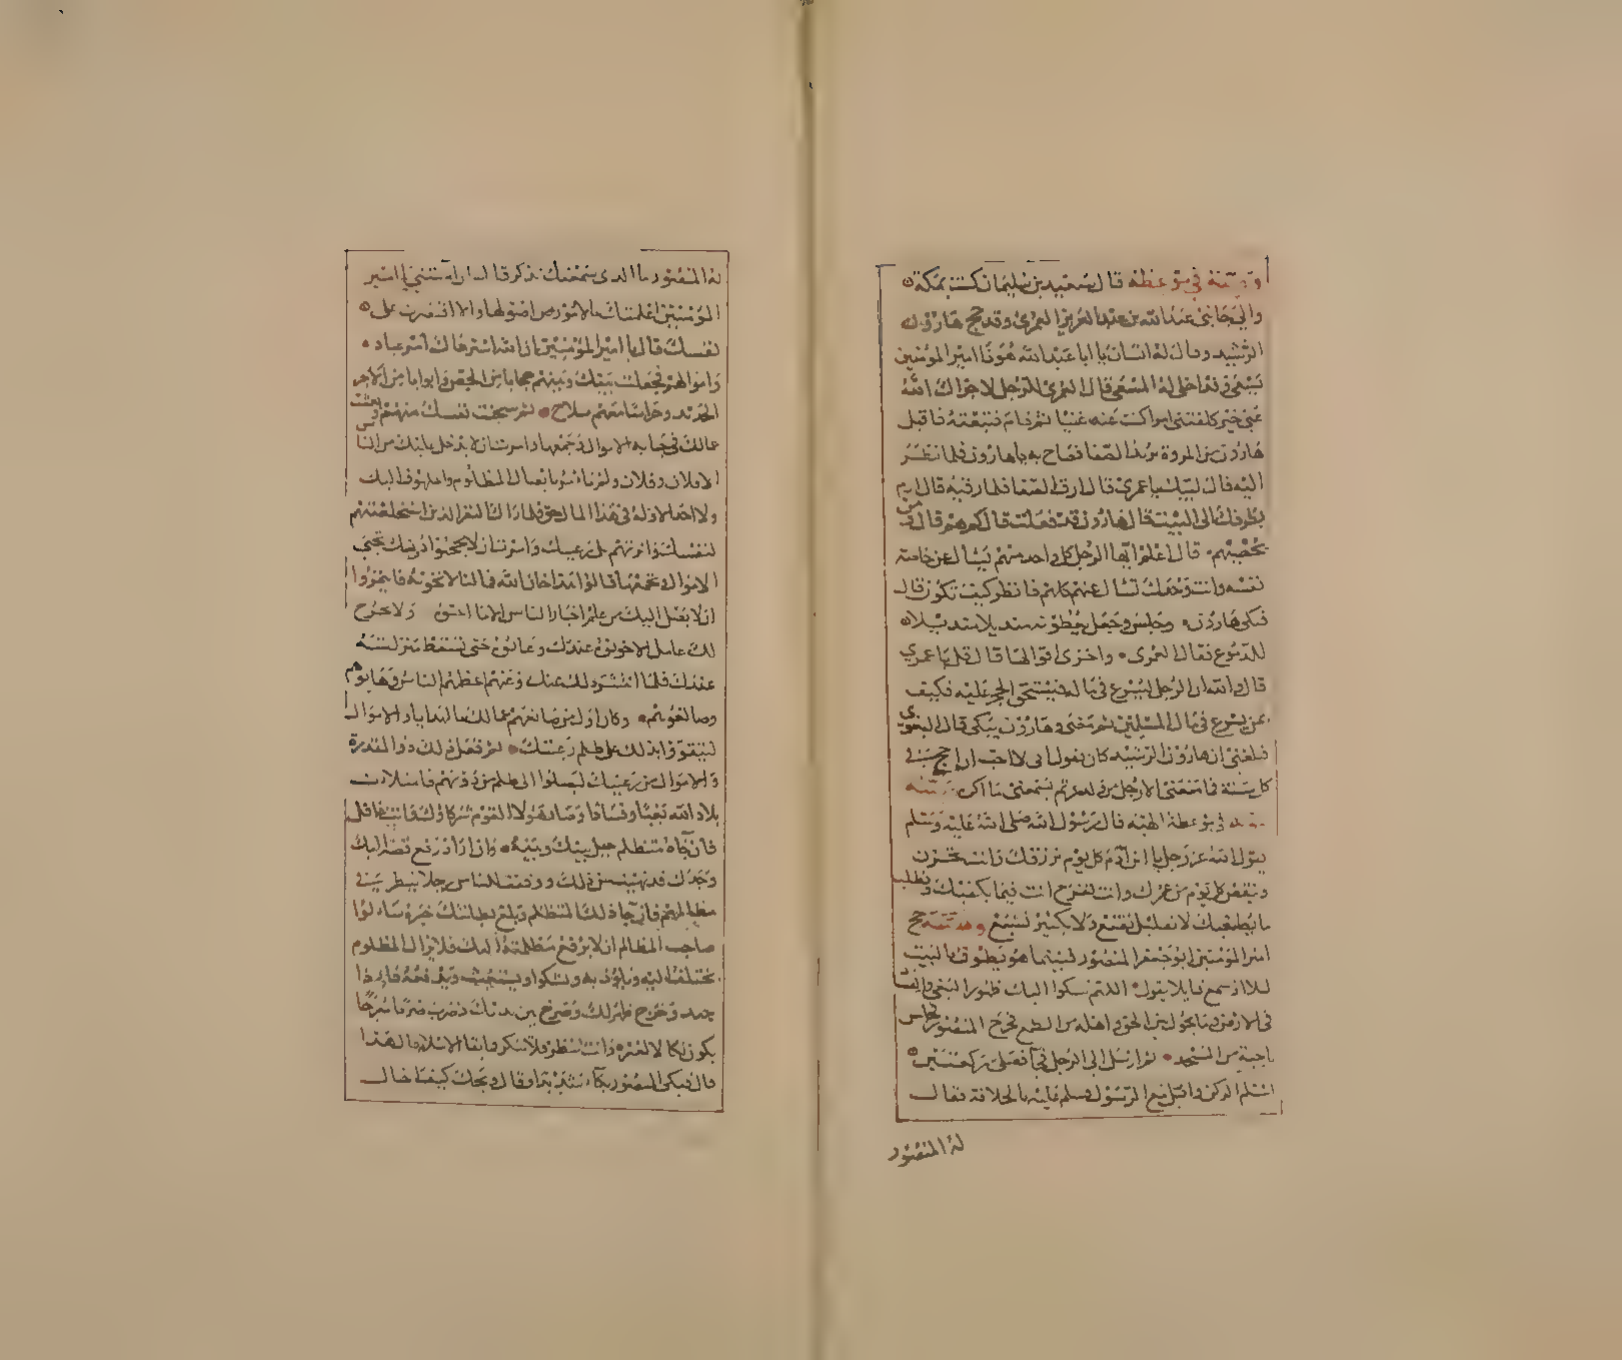 ومنه في موعظة قال سعيد بن سليمان كنت بمكة
والى جانبي عبد الله بن عبد العزيز العمري وقد حج هارون
الرشيد وقال له انسان يا ابا عبد الله هوذا امير المومنين
يسعى قد اخلى له المسعى قال العمري للرجل لا جزاك الله
عني خير كلفتني امرا كنت عنه غنيا ثم قام فتبعته فاقبل
هارون من المروة يريد الصفا فصاح به يا هارون فلما نظر
اليه قال لبيك يا عمري قال ارق الصفا فلما رقيه قال ارم
بطرفك الى البيت قال هارون قد فعلت قال كم هم قال ومن
يحصيهم قال اعلم ايها الرجل كل واحد منهم يسال عن خاصة
نفسه وانت وحدك تسال عنهم كلهم فانظر كيف تكون قال
فبكى هارون وجلس وجعل يعطونه منديلا منديلا
للدموع فقال العمري واخرى اقولها قال قل يا عمري
قال والله ان الرجل ليسرع في ماله فيستحق الحجر عليه فكيف
بمن يسرع في مال المسلمين ثم مضى وهارون يبكى قال البغوي
فبلغني ان هارون الرشيد كان يقول انى لاحب ان احج
كل سنة فما يمنعني الا رجل من ولد عمر ثم يسمعني ما اكره
في موعظة الهيه قال رسول الله صلى الله عليه وسلم
يقول الله عز وجل يا ابن آدم كل يوم نرزقك وانت تحزن
وينقص كل يوم من عمرك وانت تفرح انت فيما يكفيك وتطلب
ما يطغيك لا بقليل تقنع ولا بكثير تشبع حج
امير المومنين ابو جعفر المنصور فبينما هو يطوف بالبيت
ليلا اذ سمع قايلا يقول اللهم نشكوا اليك ظهور البغي والفساد
في الارض وما يحول بين الحق واهله من الطمع فخرج المنصور فجلس
ناحية من المسجد ثم ارسل الى الرجل فصلى ركعتين
استلم الركن واقبل مع الرسول وسلم عليه بالخلافة فقال
له المنصور
له المنصور ما الذي سمعتك تذكر قال ان امنتني يا امير
المومنين اعلمتك بالامور من اصولها والا اقتصرت على
نفسك قال يا امير المومنين ان الله استرعاك امر عباده
واموالهم فجعلت بينك وبينهم حجابا من الجص وابوابا من الاجر
الحديد وحراسا معهم سلاح ثم سجنت نفسك منهم وبعثت
عمالك في جباية الاموال وجمعها وامرت ان لا يدخل عليك من الناس
الا فلان وفلان ولم تامر بايصال المظلوم والملهوف اليك
ولا احد الا وله في هذا المال حق فلما راك النفر الذين استخلصتهم
لنفسك واثرتهم على رعيتك وامرت ان لا يحجبوا دونك تجبى
الاموال وتجمعها قالوا هذا خان الله فما لنا لا نخونه فايتمروا
ان لا يصل اليك من علم اخبار الناس الا ما احبوا ولا يخرج
لك عامل الا خونوه عندك وعابوه حتى تسقط منزلته
عندك فلما انتشر ذلك عنك وعنهم اعظمهم الناس وهابوهم
وصانعوهم وكان اول من صانعهم عمالك بالهدايا والاموال
ليتقووا بذلك على ظلم رعيتك ثم فعل ذلك ذوا المقدرة
والاموال من رعيتك ليصلوا الى ظلم من دونهم فامتلات
بلاد الله بغيا وفسادا وصار هولا القوم شركاؤك وانت غافل
فان جاه متظلم حيل بينك وبينه وان اراد رفع قصة اليك
وجدك قد نهيت عن ذلك ووقفت للناس رجلا ينظر في
مظالمهم فان جا ذلك المتظلم وبلغ بطانتك خبره سالوا
صاحب المظالم ان لا يرفع مظلمته اليك فلا يزال المظلوم
يختلف اليه ويلوذ به ويشكوا ويستغيث ويدفعه فاذا
جهد وخرج ظهر لك وصرخ بين يديك ضرب ضربا مبرحا
يكون نكالا لغيره وانت تنظر فلا تنكر فما بقا الاسلام على هذا
قال فبكى المنصور بكاء شديدا وقال ويحك كيف احتال